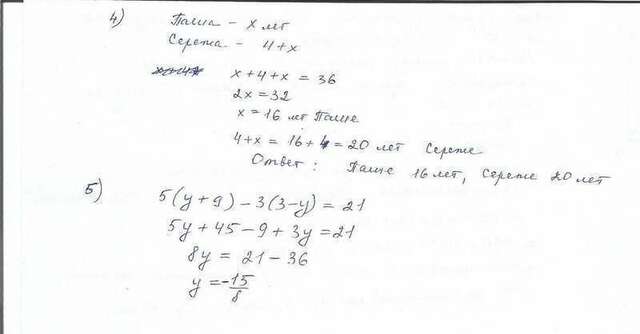 4) Паша - x лет
Сережа - 4+x
x+4+x = 36
2x = 32
x = 16 лет Паше
4+x = 16+4 = 20 лет Сереже
Ответ: Паше 16 лет, Сереже 20 лет
5) 5(y+9) - 3(3-y) = 21
5y + 45 - 9 + 3y = 21
8y = 21 - 36
y = -15/8